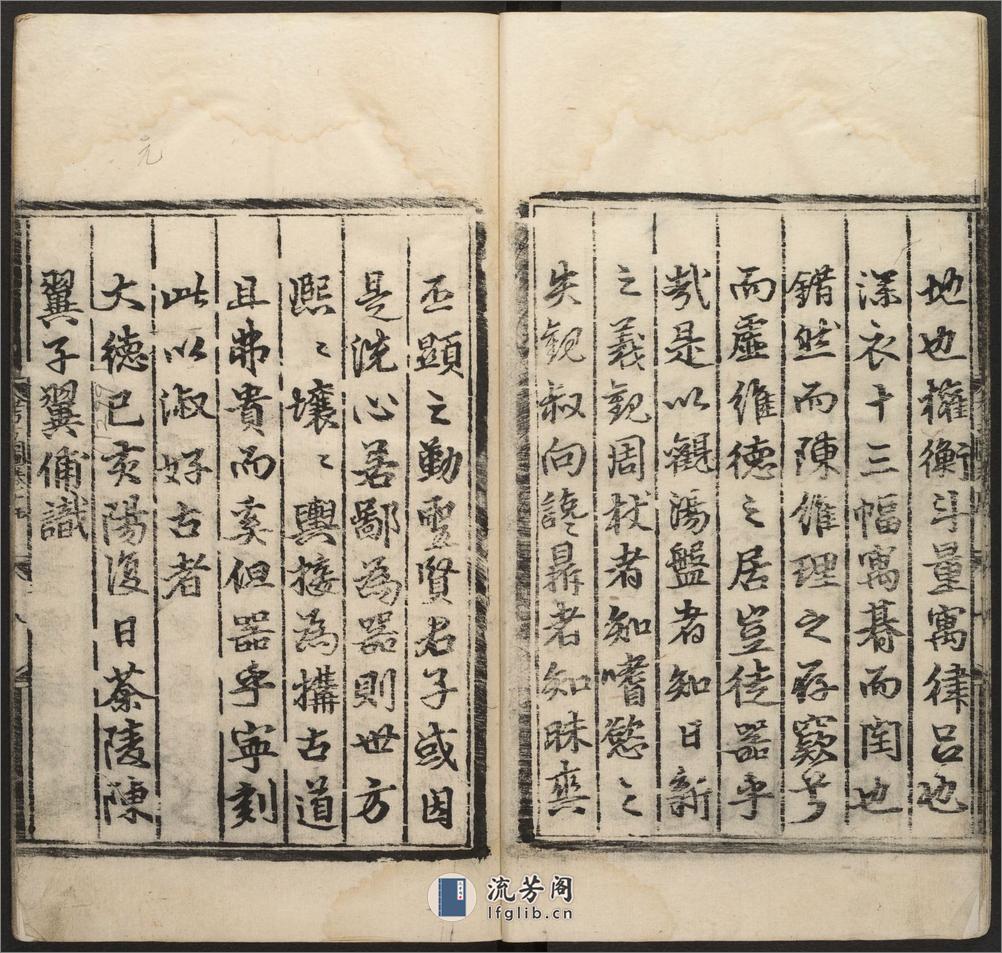 地也權衡斗量寓律呂也
深衣十三幅寓朞而閏也
錯然而陳維理之存窽兮
而虛維德之居豈徒器乎
哉是以觀湯盤者知日新
之義觀周杖者知嗜慾之
失觀叔向讒之鼎者知昧爽
丕顯之勤聖賢君子或因
是洗心若鄙為器則世方
熙〻壤〻輿接為搆古道
且弗貴而奚但器乎寧刻
此以淑好古者
大德已亥陽復日茶陵陳
翼子翼俌識
元
流芳阁
lfglib.cn